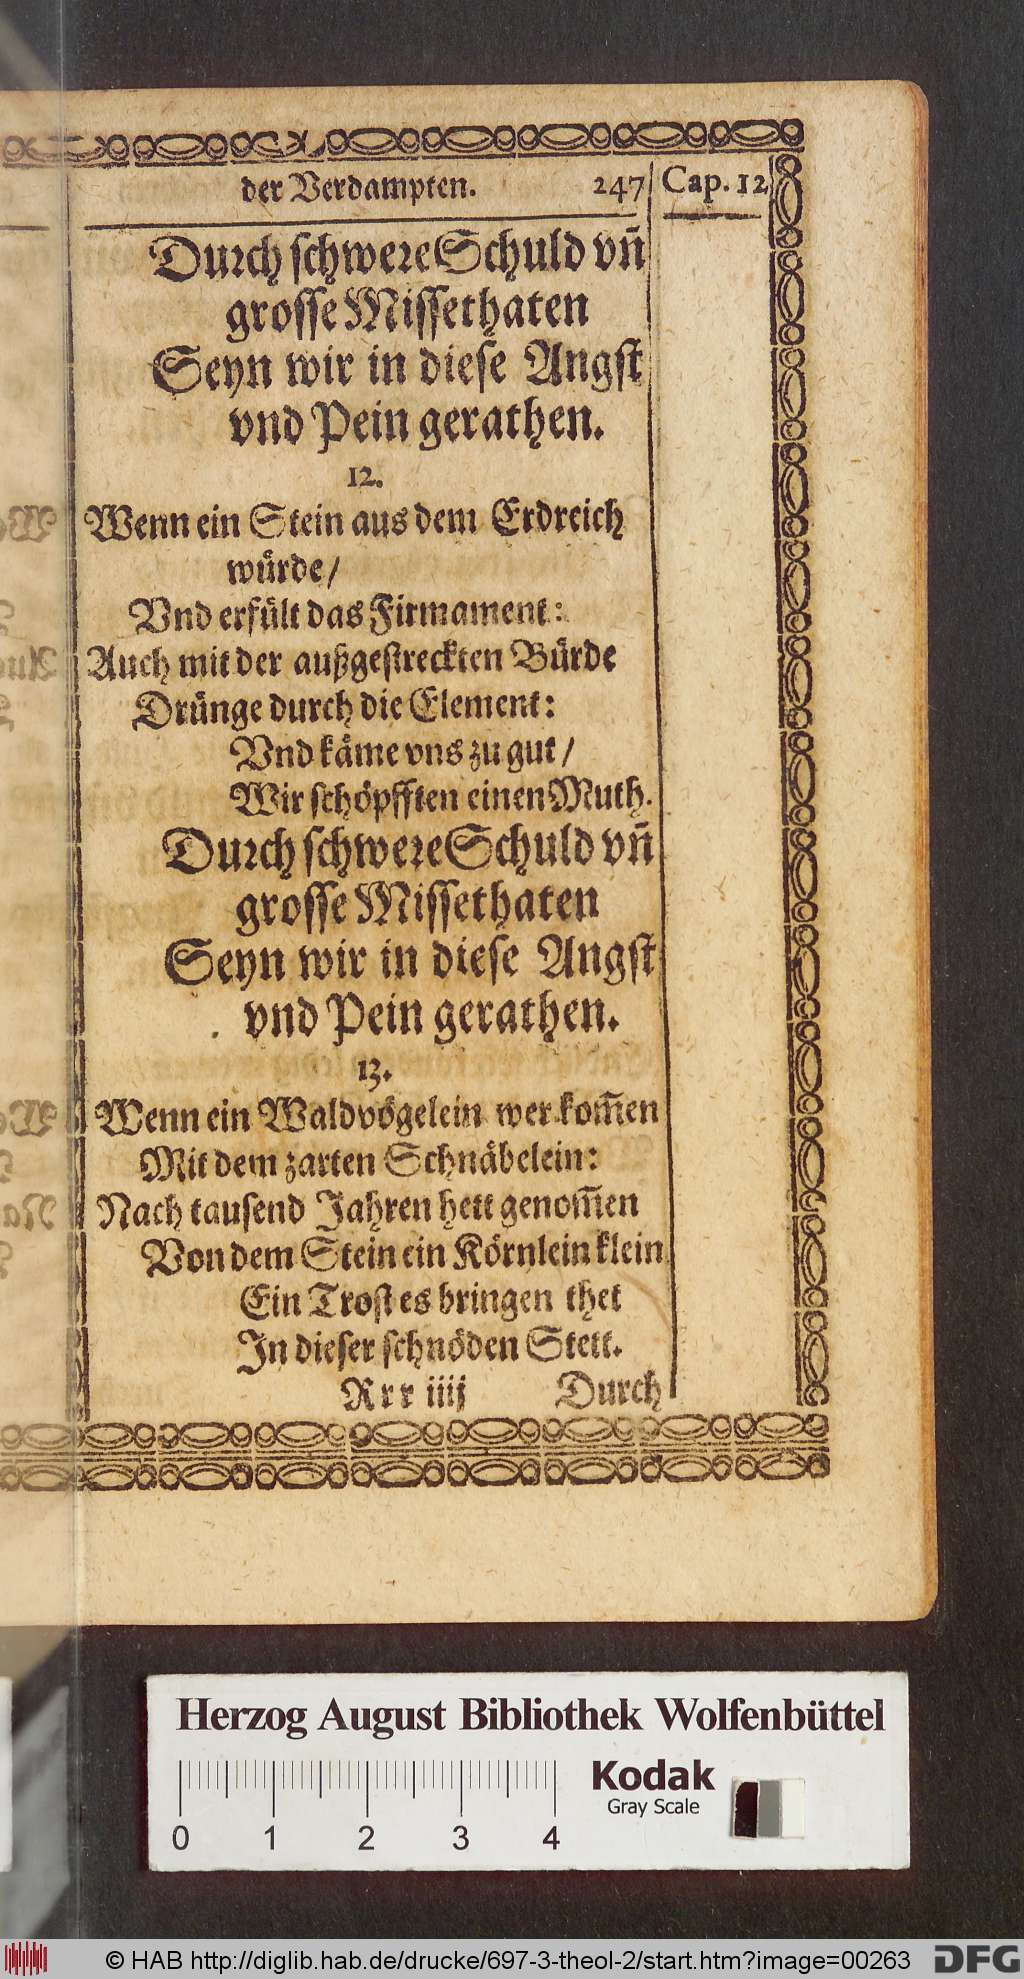 der Verdampten. 247 Cap. 12
Durch schwere Schuld vñ
grosse Missethaten
Seyn wir in diese Angst
vnd Pein gerathen.
12.
Wenn ein Stein aus dem Erdreich
würde/
Vnd erfült das Firmament:
Auch mit der außgestreckten Bürde
Drünge durch die Element:
Vnd käme vns zu gut/
Wir schöpfften einen Muth.
Durch schwere Schuld vñ
grosse Missethaten
Seyn wir in diese Angst
vnd Pein gerathen.
13.
Wenn ein Waldvögelein wer kom̃en
Mit dem zarten Schnäbelein:
Nach tausend Jahren hett genom̃en
Von dem Stein ein Körnlein klein
Ein Trost es bringen thet
In dieser schnöden Stett.
Rrr iiij Durch
Herzog August Bibliothek Wolfenbüttel
Kodak
Gray Scale
0 1 2 3 4
© HAB http://diglib.hab.de/drucke/697-3-theol-2/start.htm?image=00263 DFG